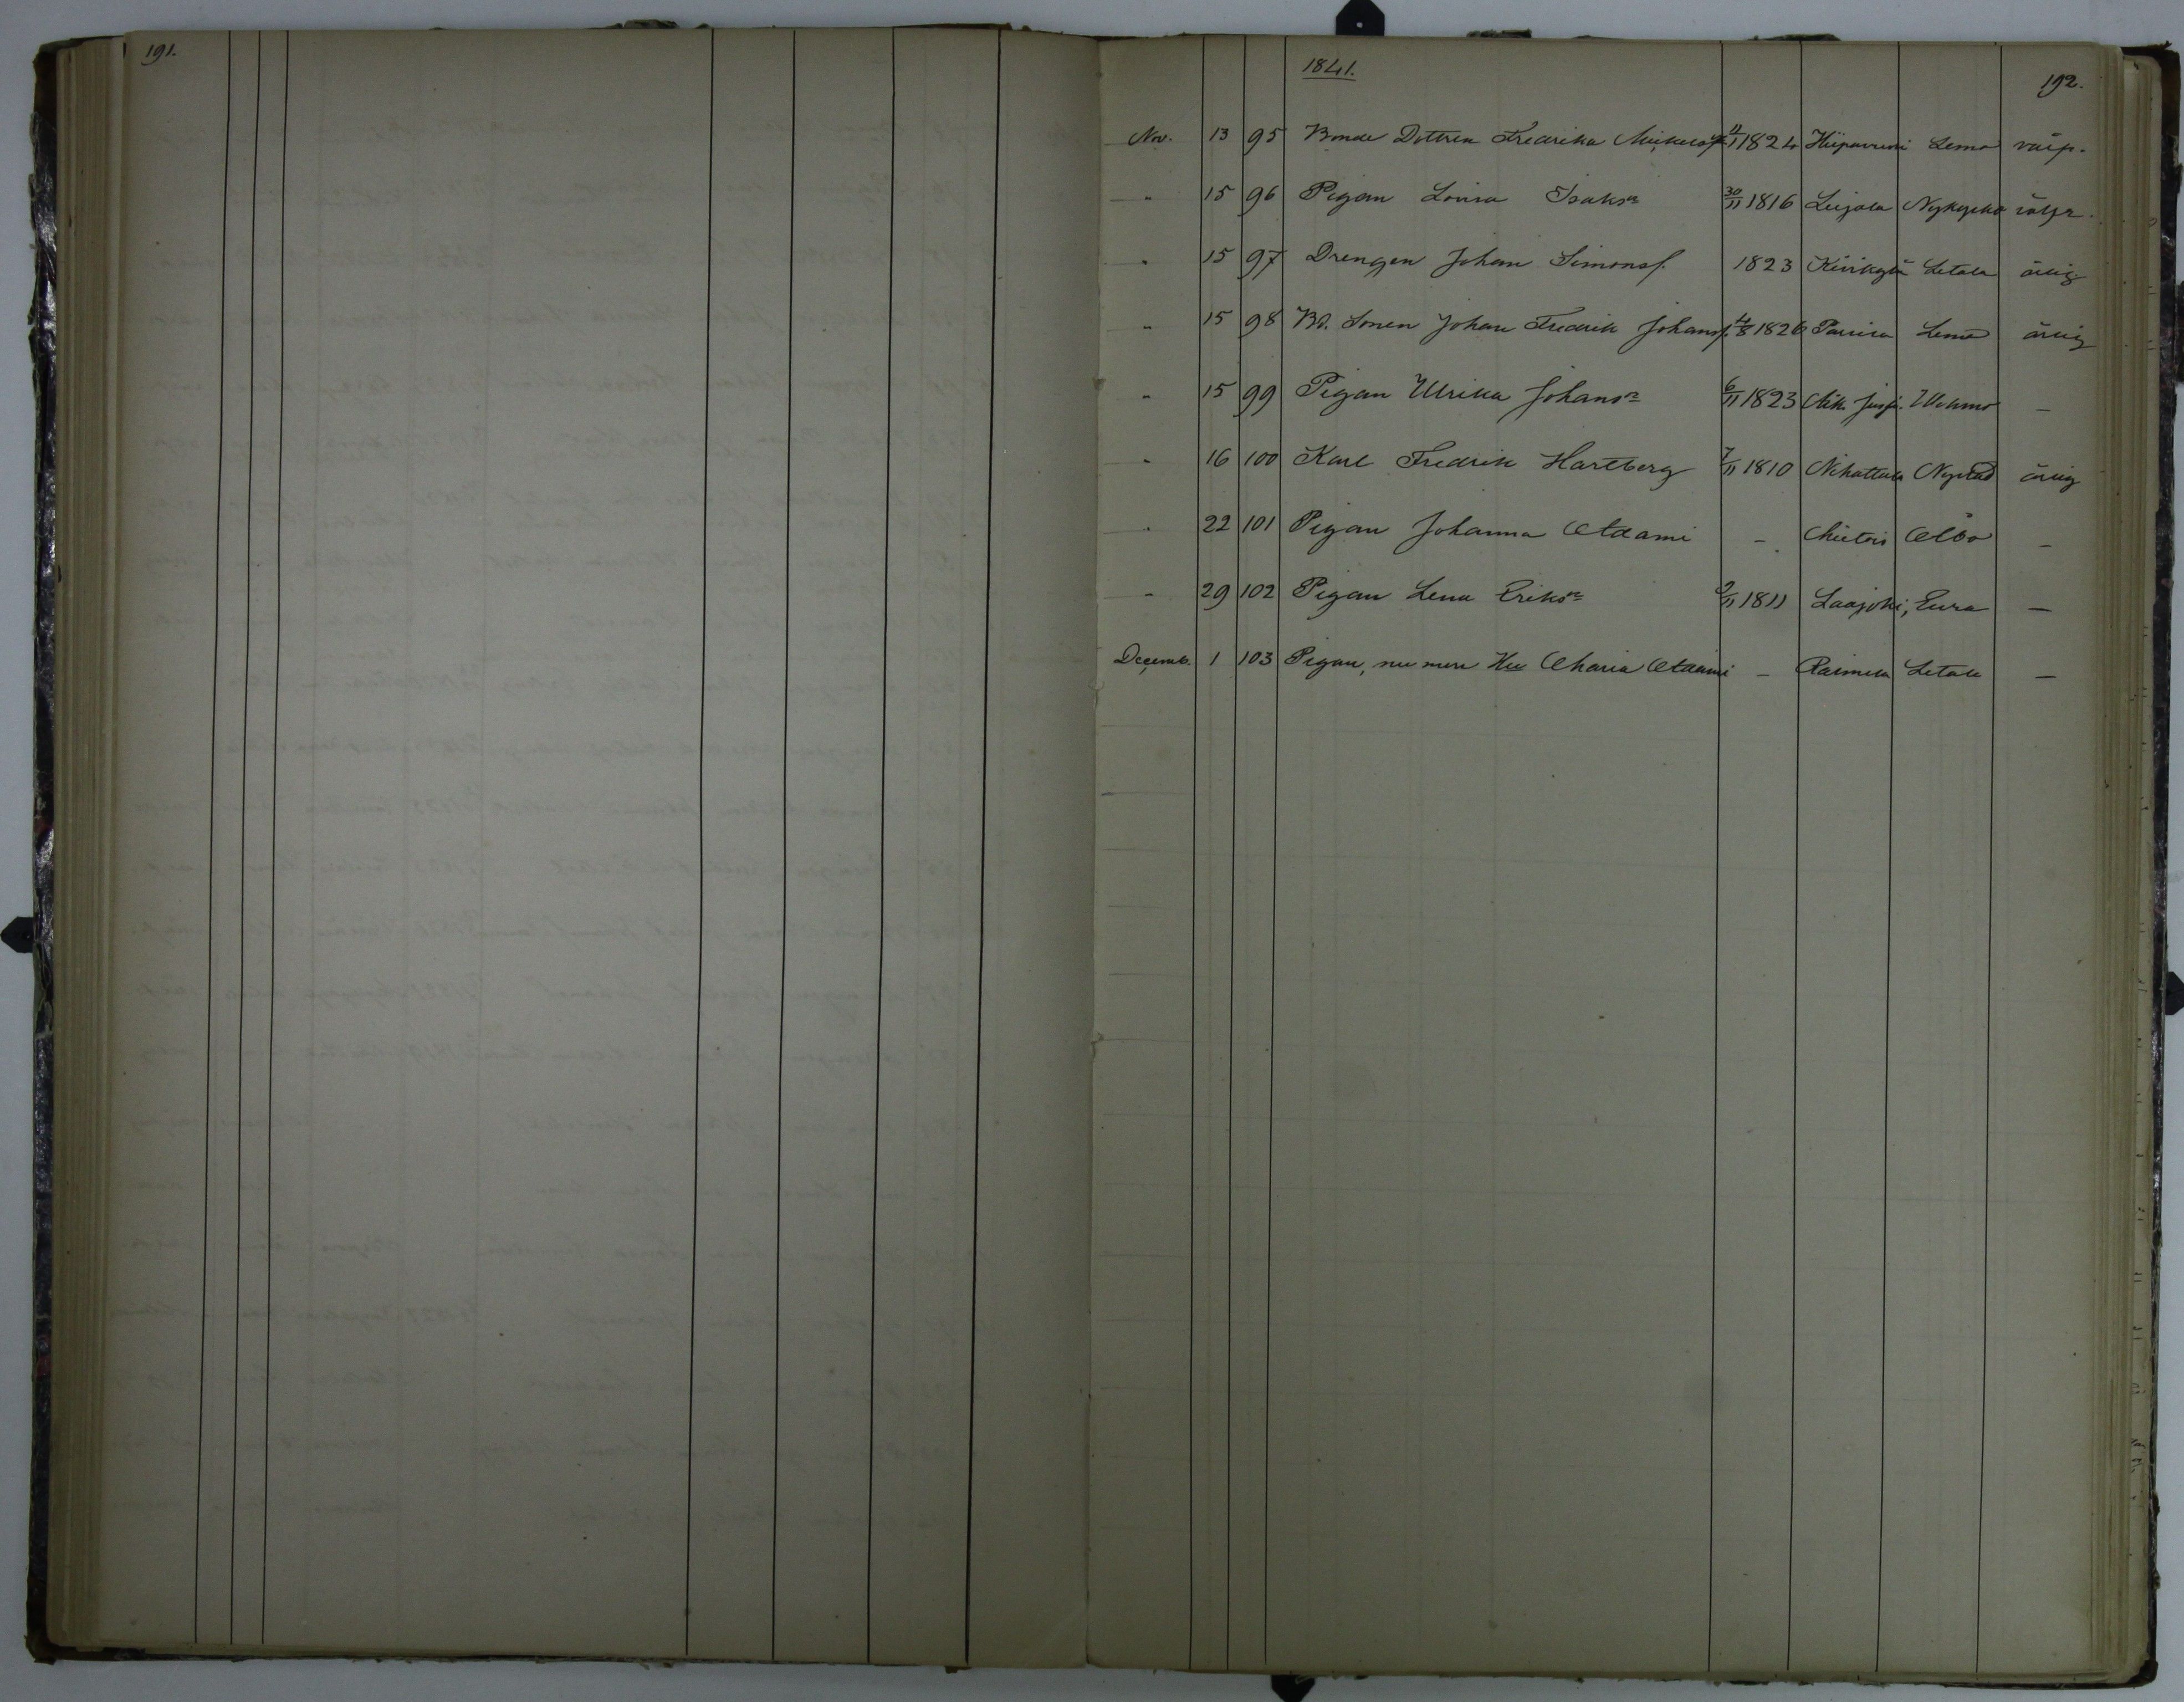 191.
1841.
192.
Nov. 13 95 Bonde Dottren Fredrika Mickelsdr 11/1 1824 Hiipavuori Lemo väip.
" 15 96 Pigan Lovisa Isaksdr 30/11 1816 Leijola Nykyrko
" 15 97 Drengen Johan Simonsf. 1823 Kivikylä Letala ärlig
" 15 98 Bd. Sonen Johan Fredrik Johansf. 4/8 1826 Parrila Lemo ärlig
" 15 99 Pigan Ulrika Johansdr 6/11 1823 Wehmo —
" 16 100 Karl Fredrik Hartberg 7/11 1810 Nihattula Nystad ärlig
" 22 101 Pigan Johanna Adami — Åbo —
" 29 102 Pigan Lena Eriksdr 2/11 1811 Laajoki, Eura —
Decemb. 1 103 Pigan, nu mera Hu Maria Adami — Raimela Letala —